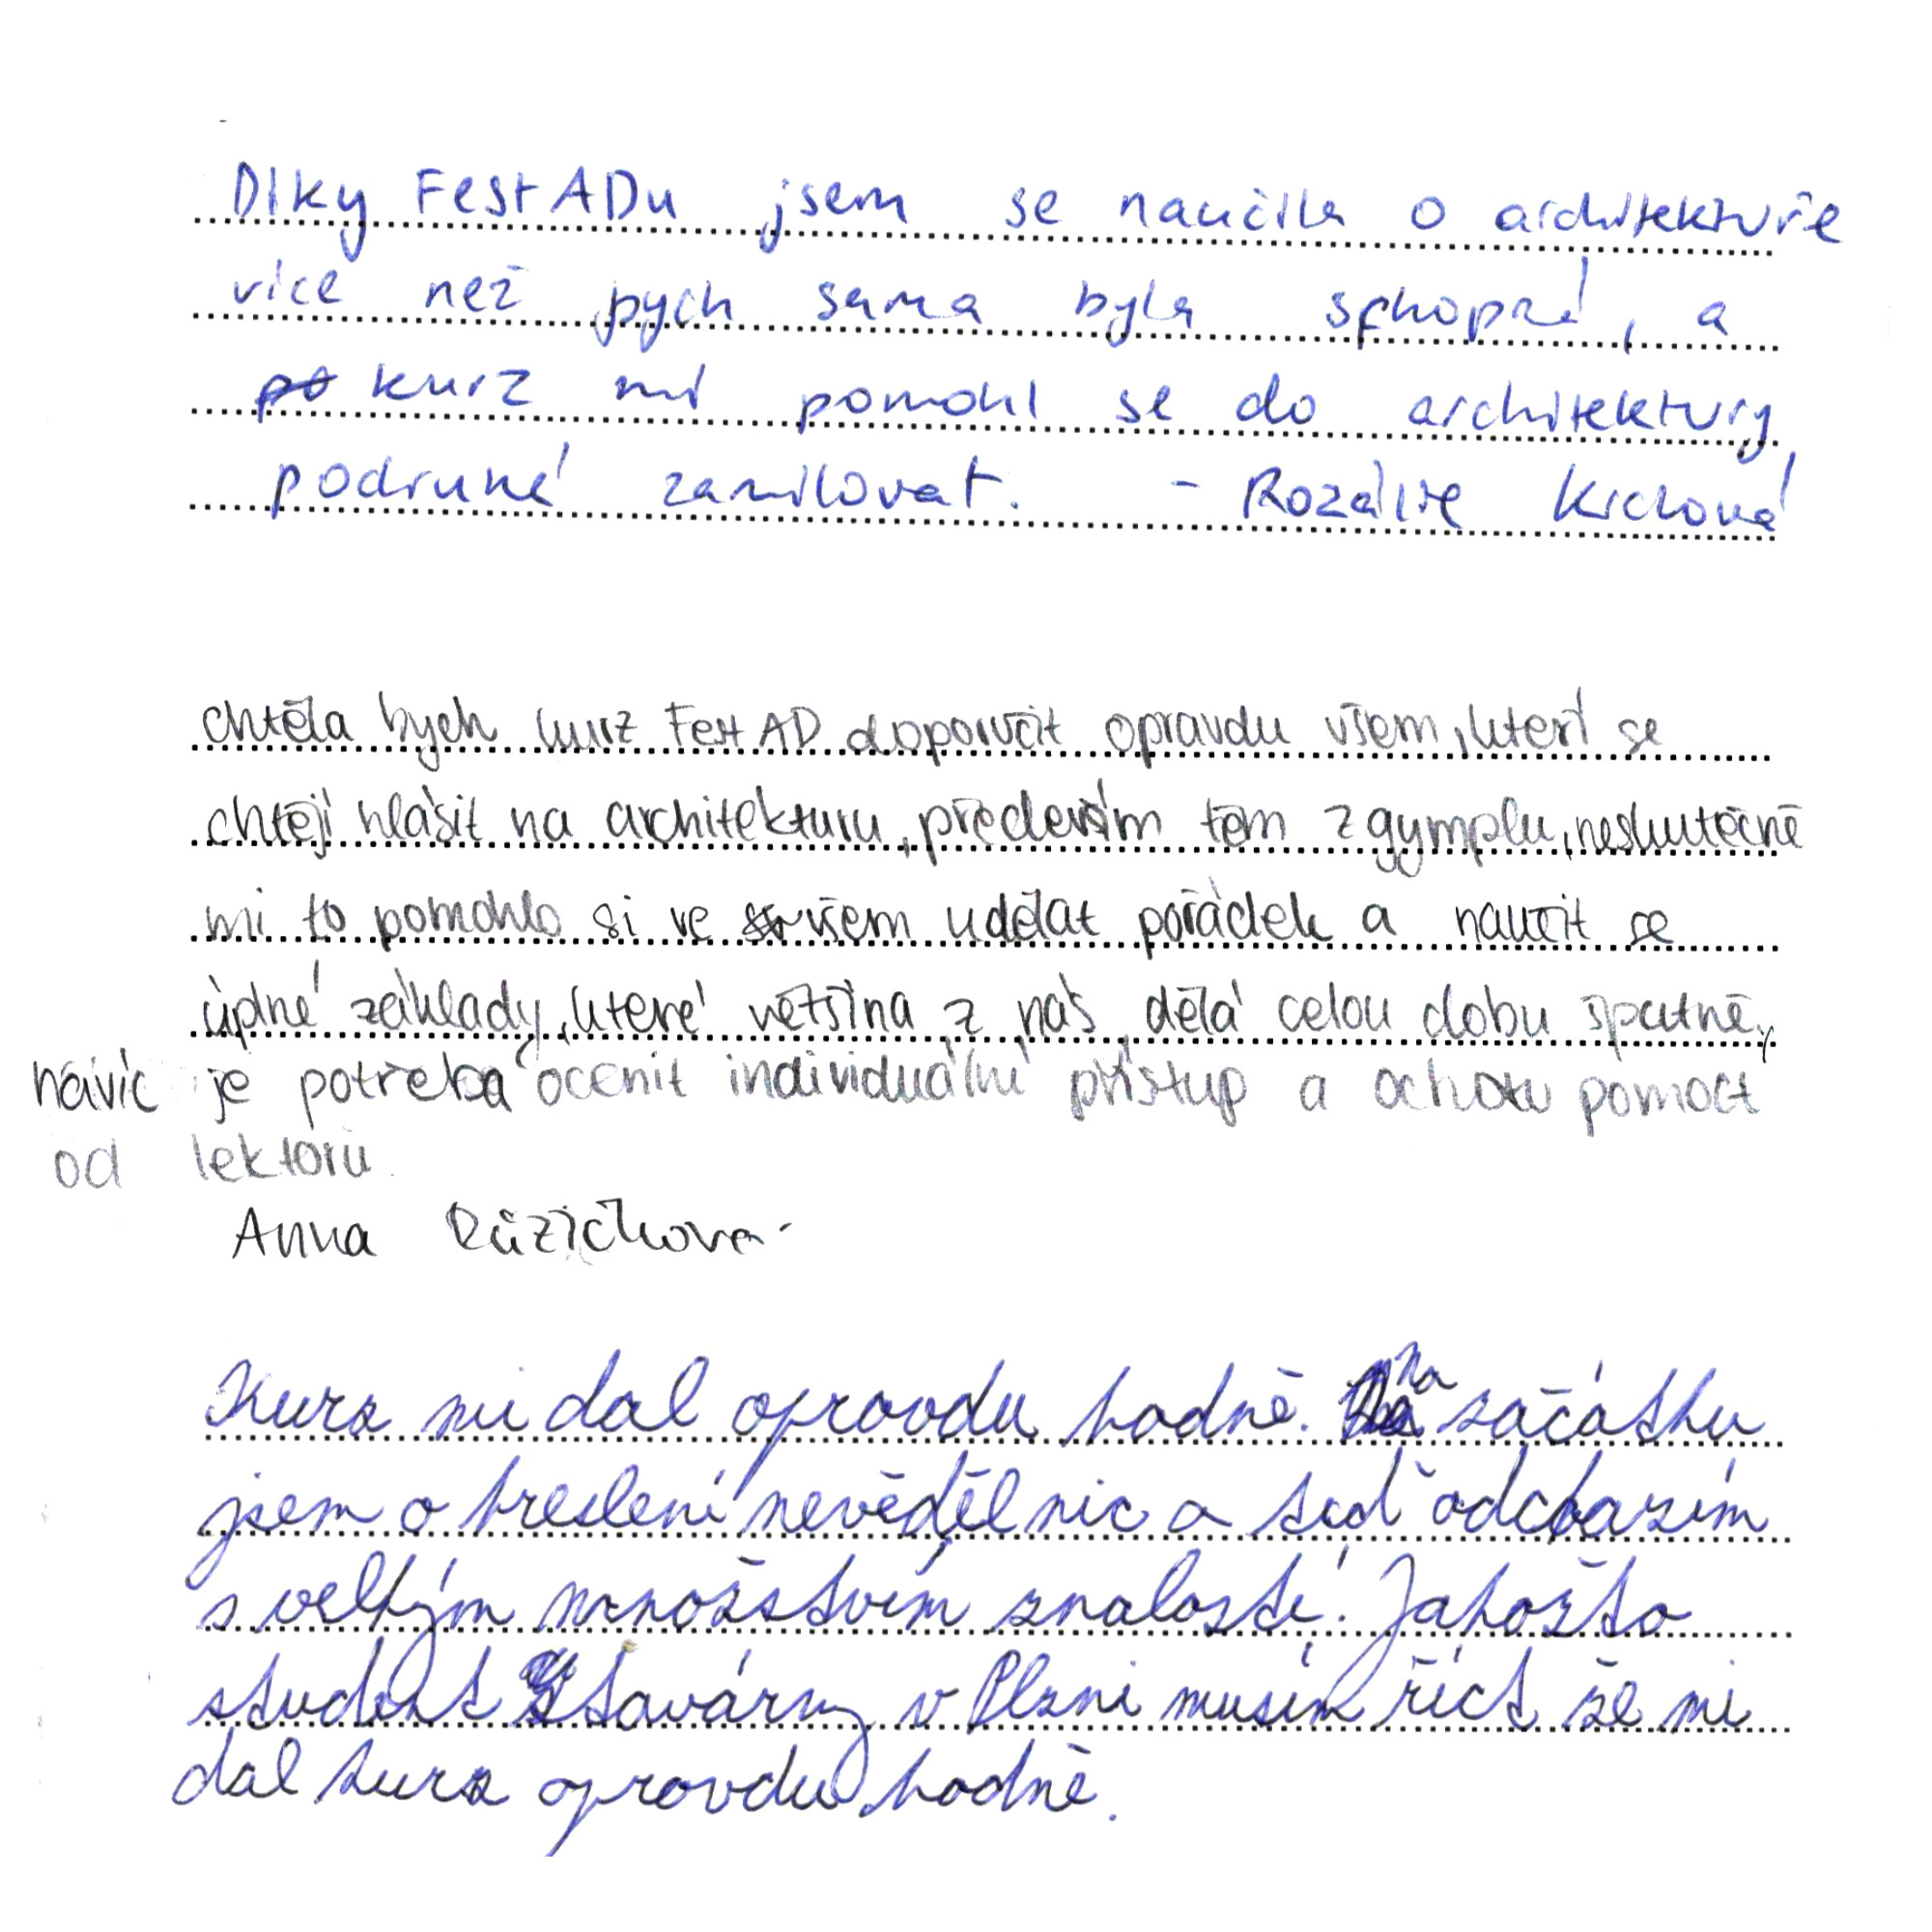 Díky FestADu jsem se naučila o architektuře
více než bych sama byla schopná, a
kurz mi pomohl se do architektury
podruhé zamilovat. - Rozálie Krclová
chtěla bych kurz FestAD doporučit opravdu všem, kteří se
chtějí hlásit na architekturu, především těm z gymplu, neskutečně
mi to pomohlo si ve všem udělat pořádek a naučit se
úplné základy, které většina z nás dělá celou dobu špatně,
navíc je potřeba ocenit individuální přístup a ochotu pomoct
od lektorů.
Anna Růžičková
Kurz mi dal opravdu hodně. na začátku
jsem o kreslení nevěděl nic a teď odcházím
s velkým množstvím znalostí. Jakožto
student Stavárny v Plzni musím říct že mi
dal kurz opravdu hodně.